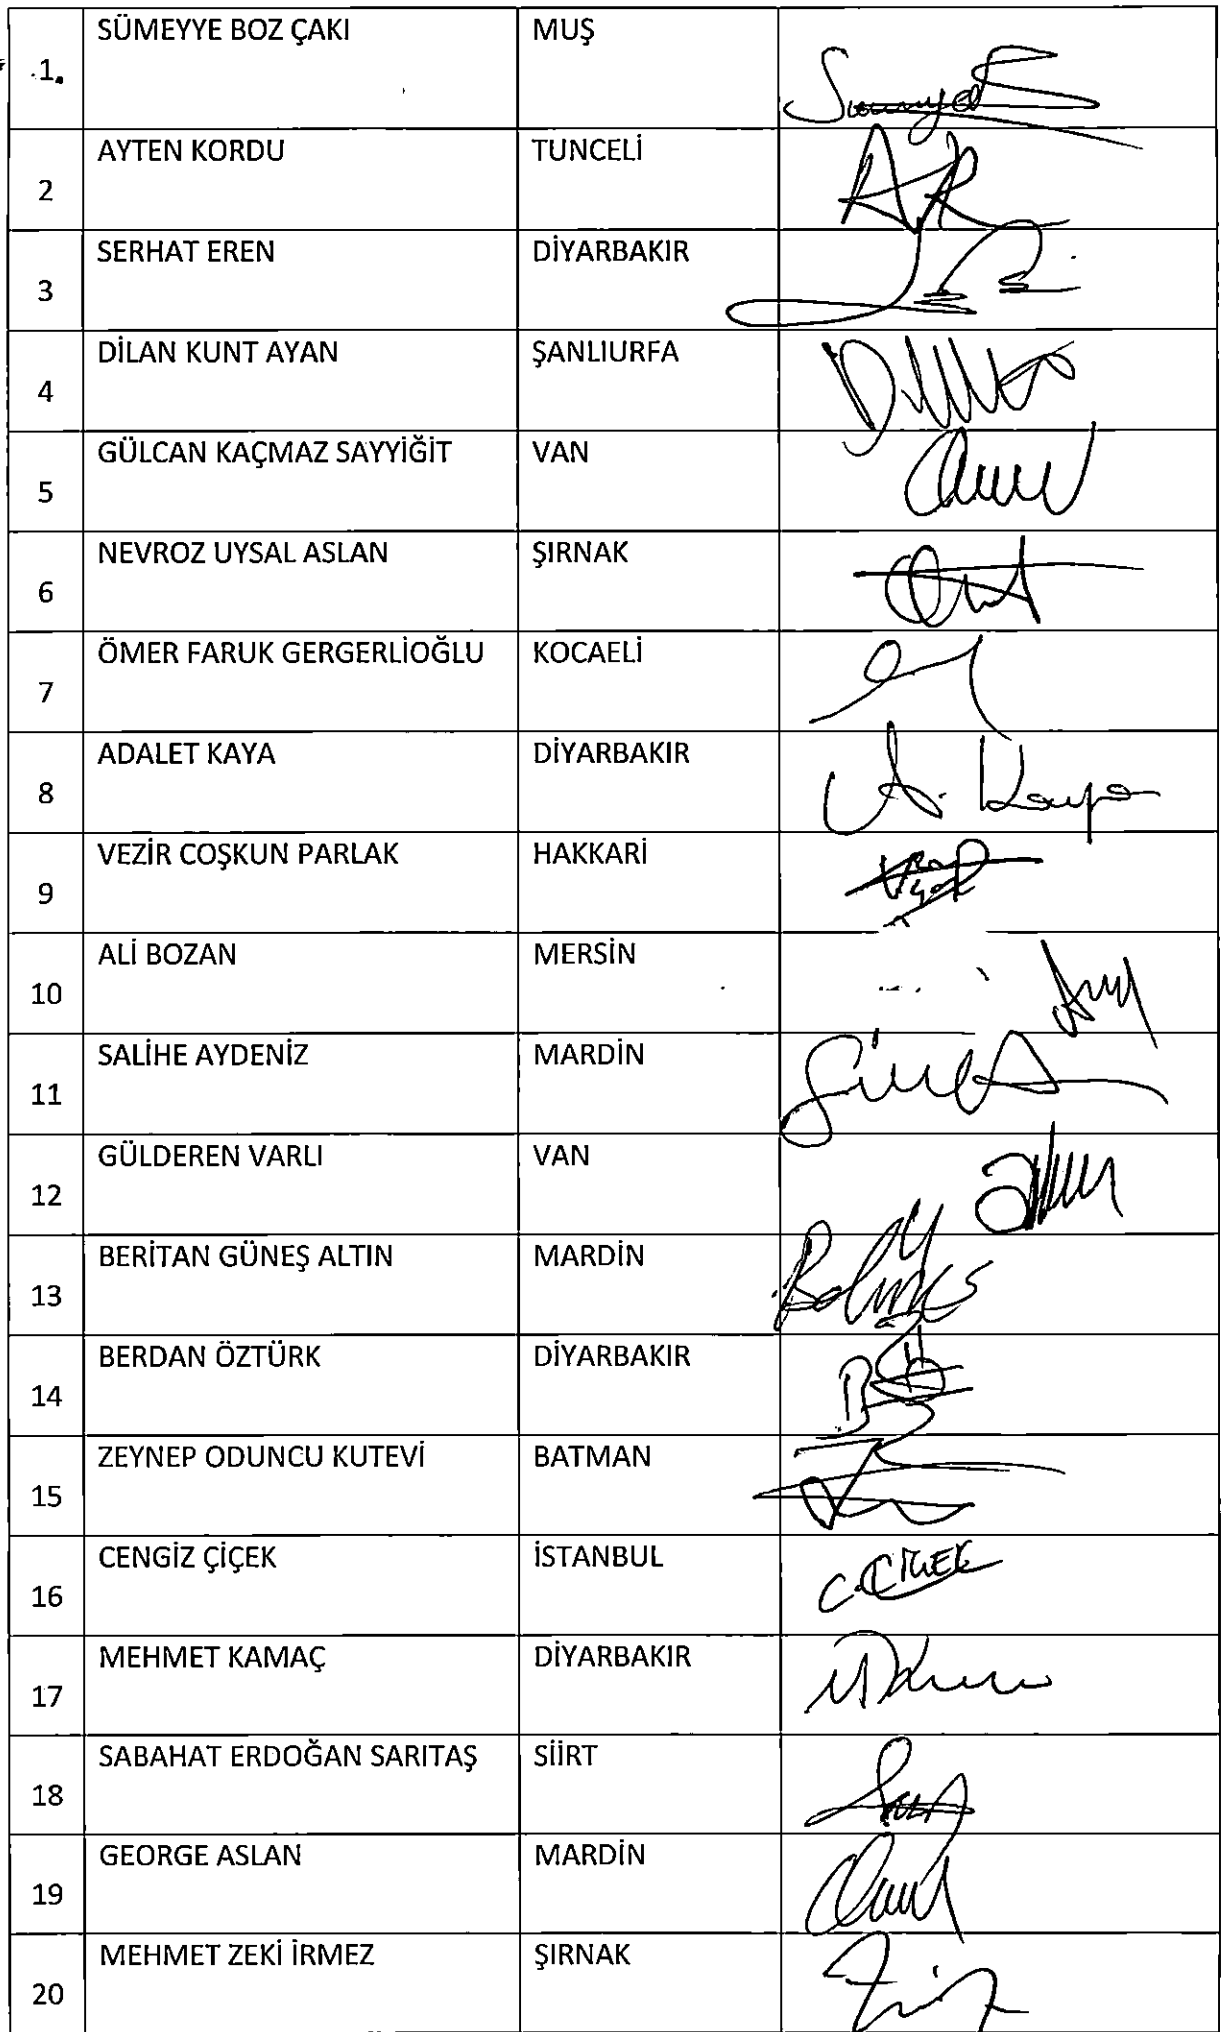 1. SÜMEYYE BOZ ÇAKI MUŞ
2 AYTEN KORDU TUNCELİ
3 SERHAT EREN DİYARBAKIR
4 DİLAN KUNT AYAN ŞANLIURFA
5 GÜLCAN KAÇMAZ SAYYİĞİT VAN
6 NEVROZ UYSAL ASLAN ŞIRNAK
7 ÖMER FARUK GERGERLİOĞLU KOCAELİ
8 ADALET KAYA DİYARBAKIR A. Kaya
9 VEZİR COŞKUN PARLAK HAKKARİ
10 ALİ BOZAN MERSİN
11 SALİHE AYDENİZ MARDİN
12 GÜLDEREN VARLI VAN
13 BERİTAN GÜNEŞ ALTIN MARDİN
14 BERDAN ÖZTÜRK DİYARBAKIR
15 ZEYNEP ODUNCU KUTEVİ BATMAN
16 CENGİZ ÇİÇEK İSTANBUL C.ÇİÇEK
17 MEHMET KAMAÇ DİYARBAKIR
18 SABAHAT ERDOĞAN SARITAŞ SİİRT
19 GEORGE ASLAN MARDİN
20 MEHMET ZEKİ İRMEZ ŞIRNAK